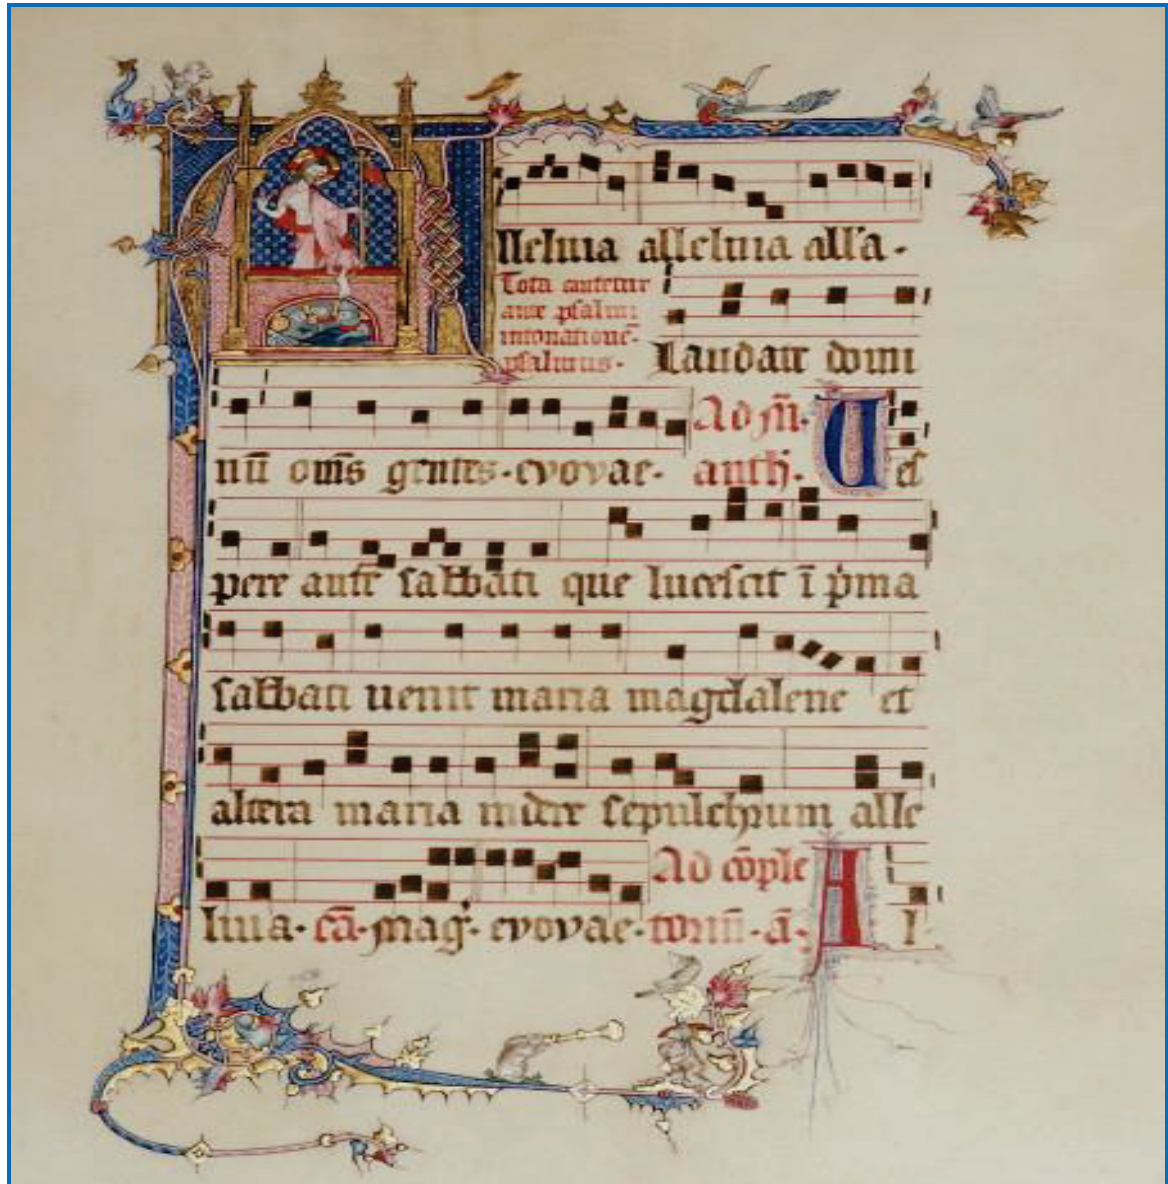 lleluia alleluia all'a.
Tota cantetur
ante psalmū
intonationē
psalmus.
Laudate domi
nū om̄s gentes. evovae. Ad m̄. Ues
anth̄.
pere autē sabbati que lucescit ī p̄ma
sabbati uenit maria magdalene et
altera maria uidere sepulchrum alle
luia. cā. mag'. evovae. Ad cōple
toriū. ā. Al